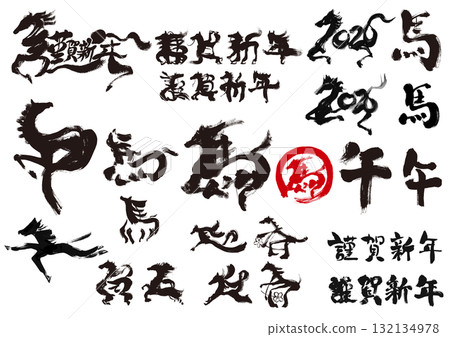 謹賀新年
謹賀新年
謹賀新年
2026
馬
2026
馬
馬
馬
午
午
馬
迎
春
謹賀新年
賀正
迎春
謹賀新年
132134978